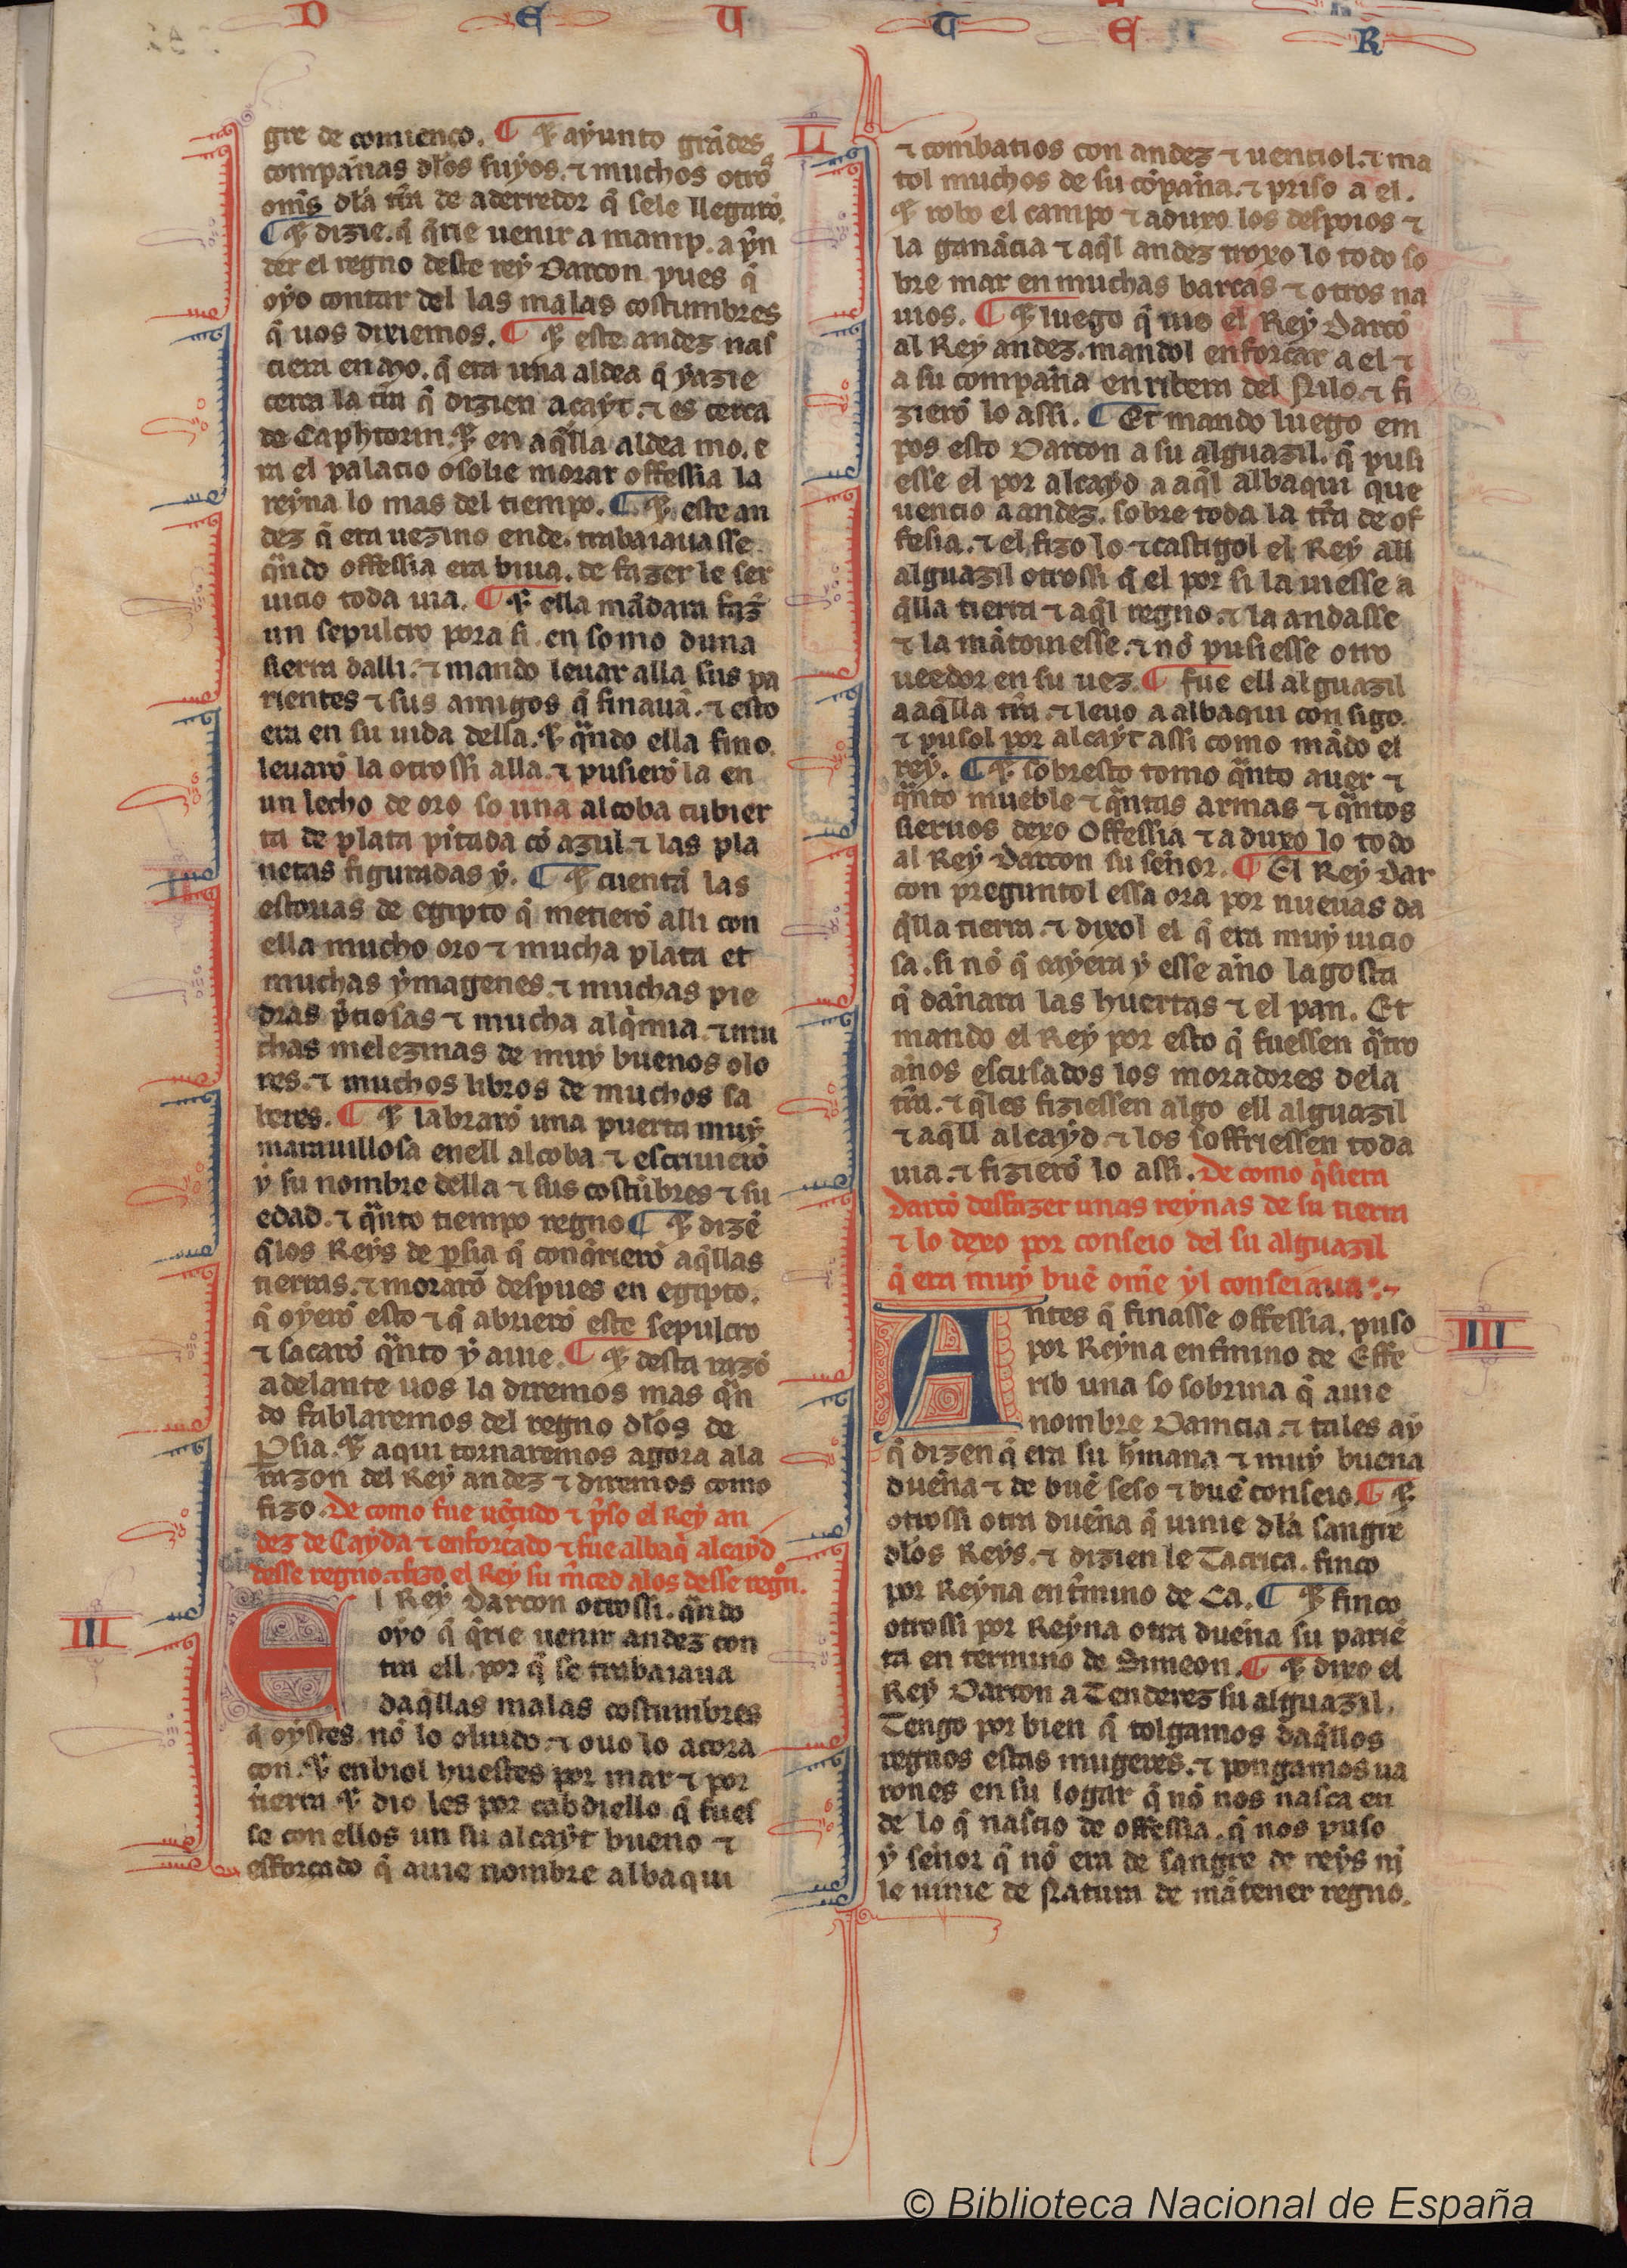 D E U T E R
gre de comienço. ¶ ⁊ ayunto grãdes
compannas dłos suyos. ⁊ muchos otros
om̃s dłã tr̃ra de aderredor q̃ sele llegarõ.
¶ ⁊ dizie. q̃ q̃rie uenir a manip. a p̃n
der el regno deste rey Darcon pues q̃
oyo contar del las malas costumbres
q̃ uos dixiemos. ¶ ⁊ este andez nas
ciera en mo. q̃ era una aldea q̃ yazie
cerca la tr̃ra q̃ dizien acayt. ⁊ es cerca
de Caphtorin. ⁊ en aq̃lla aldea mo. e
ra el palacio o solie morar offessia la
reyna lo mas del tiempo. ¶ ⁊ este an
dez q̃ era uezino ende. trabaiauasse
q̃ndo offessia era biua. de fazer le ser
uicio toda uia. ¶ ⁊ ella mãdara faz̃
un sepulcro pora si en somo duna
sierra dalli. ⁊ mando leuar alla sus pa
rientes ⁊ sus amigos q̃ finauã. ⁊ esto
era en su uida della. ⁊ q̃ndo ella fino.
leuarõ la otrossi alla. ⁊ pusierõ la en
un lecho de oro so una alcoba cubier
ta de plata pĩtada cõ azul. ⁊ las pla
netas figuradas y. ¶ ⁊ cuentã las
estorias de egipto q̃ metierõ alli con
ella mucho oro ⁊ mucha plata et
muchas ymagenes. ⁊ muchas pie
dras p̃ciosas ⁊ mucha alq̃mia. ⁊ mu
chas melezinas de muy buenos olo
res. ⁊ muchos libros de muchos sa
beres. ¶ ⁊ labrarõ una puerta muy
marauillosa enell alcoba. ⁊ escriuierõ
y su nombre della ⁊ sus costũbres ⁊ su
edad. ⁊ q̃nto tiempo regno ¶ ⁊ dizẽ
q̃los Reys de ꝑsia q̃ conq̃rierõ aq̃llas
tierras. ⁊ morarõ despues en egipto.
q̃ oyerõ esto ⁊ q̃ abrierõ este sepulcro
⁊ sacarõ q̃nto y auie. ¶ ⁊ desta razõ
adelante uos la diremos mas q̃n
do fablaremos del regno dłos de
ꝑsia. ⁊ aqui tornaremos agora ala
razon del Rey andez ⁊ diremos como
fizo. De como fue uẽcido ⁊ p̃so el Rey an
dez de Cayda ⁊ enforcado ⁊ fue albaq̃ alcayd
desse regno. ⁊ fizo el Rey su m̃ced alos desse regno.
III
El Rey Darcon otrossi. q̃ndo
oyo q̃ q̃rie uenir andez con
tra ell. por q̃ se trabaiaua
daq̃llas malas costumbres
q̃ oystes. nõ lo oluido. ⁊ ouo lo acora
con. ⁊ enbiol huestes por mar ⁊ por
tierra ⁊ dio les por cabdiello q̃ fues
se con ellos un su alcayt bueno ⁊
esforçado q̃ auie nombre albaqui
LI
⁊ combatios con andez ⁊ uenciol. ⁊ ma
tol muchos de su cõpanna. ⁊ priso a el.
⁊ robo el campo ⁊ aduxo los despoios ⁊
la ganãcia ⁊ aq̃l andez troxo lo todo so
bre mar en muchas barcas ⁊ otros na
uios. ¶ ⁊ luego q̃ uio el Rey Darcõ
al Rey andez. mandol enforcar a el ⁊
a su companna en ribera del Nilo. ⁊ fi
zierõ lo assi. ¶ Et mando luego em
pos esto Darcon a su alguazil. q̃ pusi
esse el por alcayd a aq̃l albaqui que
uencio a andez. sobre toda la tr̃ra de of
fesia. ⁊ el fizo lo ⁊ castigol el Rey all
alguazil otrossi q̃ el por si la uiesse a
q̃lla tierra ⁊ aq̃l regno. ⁊ la andasse
⁊ la mãtouiesse. ⁊ nõ pusiesse otro
ueedor en su uez. ¶ fue ell alguazil
a aq̃lla tr̃ra. ⁊ leuo a albaqui con sigo.
⁊ pusol por alcayt assi como mãdo el
rey. ¶ ⁊ sobresto tomo q̃nto auer ⁊
q̃nto mueble ⁊ q̃ntas armas ⁊ q̃ntos
sieruos dexo Offessia ⁊ aduxo lo todo
al Rey Darcon su sennor. ¶ El Rey Dar
con preguntol essa ora por nueuas da
q̃lla tierra. ⁊ dixol el q̃ era muy uicio
sa. si nõ q̃ cayera y esse anno lagosta
q̃ dannara las huertas ⁊ el pan. Et
mando el Rey por esto q̃ fuessen q̃tro
annos escusados los moradores dela
tr̃ra. ⁊ q̃les fiziessen algo ell alguazil
⁊ aq̃ll alcayd. ⁊ los soffriessen toda
uia. ⁊ fizierõ lo assi. De como q̃siera
Darcõ desfazer unas reynas de su tierra
⁊ lo dexo por conseio del su alguazil
q̃ era muy buẽ om̃e yl conseiaua:~
IIII
Antes q̃ finasse Offessia. puso
por Reyna en t̃mino de Effe
rib una so sobrina q̃ auie
nombre Damcia. ⁊ tales ay
q̃ dizen q̃ era su h̃mana ⁊ muy buena
duenna ⁊ de buẽ seso ⁊ buẽ conseio. ¶ ⁊
otrossi otra duenna q̃ uinie dłã sangre
dłos Reys. ⁊ dizien le Tacrica. finco
por Reyna en t̃mino de Ca. ¶ ⁊ finco
otrossi por Reyna otra duenna su pariẽ
ta en termino de Simeon. ¶ ⁊ dixo el
Rey Darcon a Tenderez su alguazil.
Tengo por bien q̃ tolgamos daq̃llos
regnos estas mugeres. ⁊ pongamos ua
rones en su logar q̃ nõ nos nasca en
de lo q̃ nascio de offessia. q̃ nos puso
y sennor q̃ nõ era de sangre de reys ni
le uinie de Natura de mãtener regno.
© Biblioteca Nacional de España